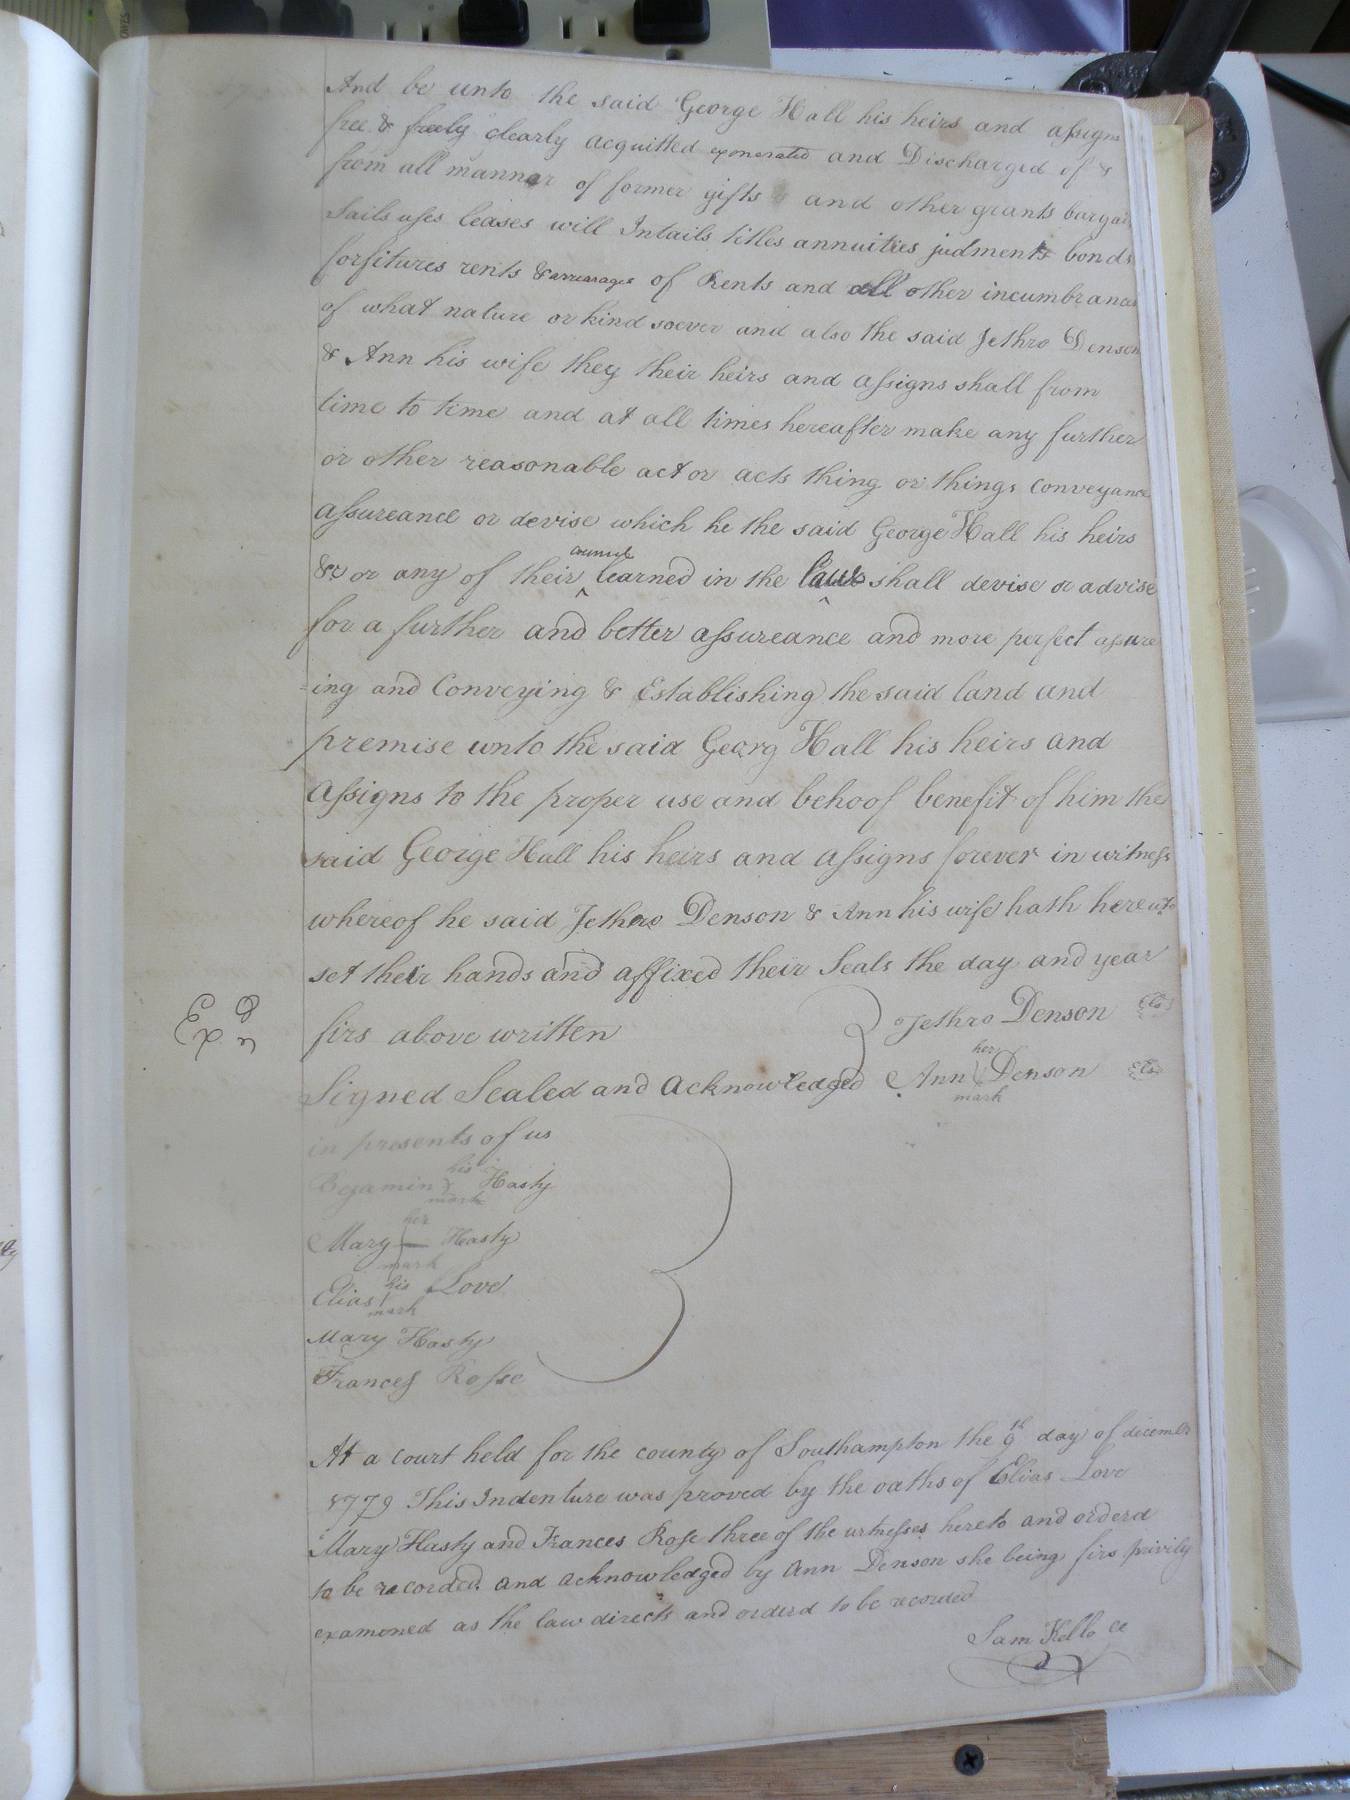 And be unto the said George Hall his heirs and assigns
free & freely clearly acquitted exonerated and Discharged of &
from all mannar of former gifts and other grants bargai
Sails uses leases will Intails titles annuities judments bonds
forfitures rents & arrearages of Rents and all other incumbrances
of what nature or kind soever and also the said Jethro Denson
& Ann his wife they their heirs and assigns shall from
time to time and at all times hereafter make any further
or other reasonable act or acts thing or things conveyance
assureance or devise which he the said George Hall his heirs
&c or any of their councel learned in the Laws shall devise or advise
for a further and better assureance and more perfect assure
=ing and Conveying & Establishing the said land and
premise unto the said Georg Hall his heirs and
assigns to the proper use and behoof benefit of him the
said George Hall his heirs and assigns forever in witness
whereof he said Jethro Denson & Ann his wife hath hereunto
set their hands and affixed their Seals the day and year
firs above written Jethro Denson
Exd
n
Signed Sealed and acknowledged Ann her mark Denson
in presents of us
Bejamin his mark Hasty
Mary her mark Hasty
Elias his mark Love
Mary Hasty
Frances Rosse
At a court held for the county of Southampton the 9th day of decembr
1779 This Indenture was proved by the oaths of Elias Love
Mary Hasty and Frances Rose three of the witnesses hereto and orderd
to be recorded and acknowledged by Ann Denson she being firs privily
examoned as the law directs and orderd to be recorded
Sam Kello cc